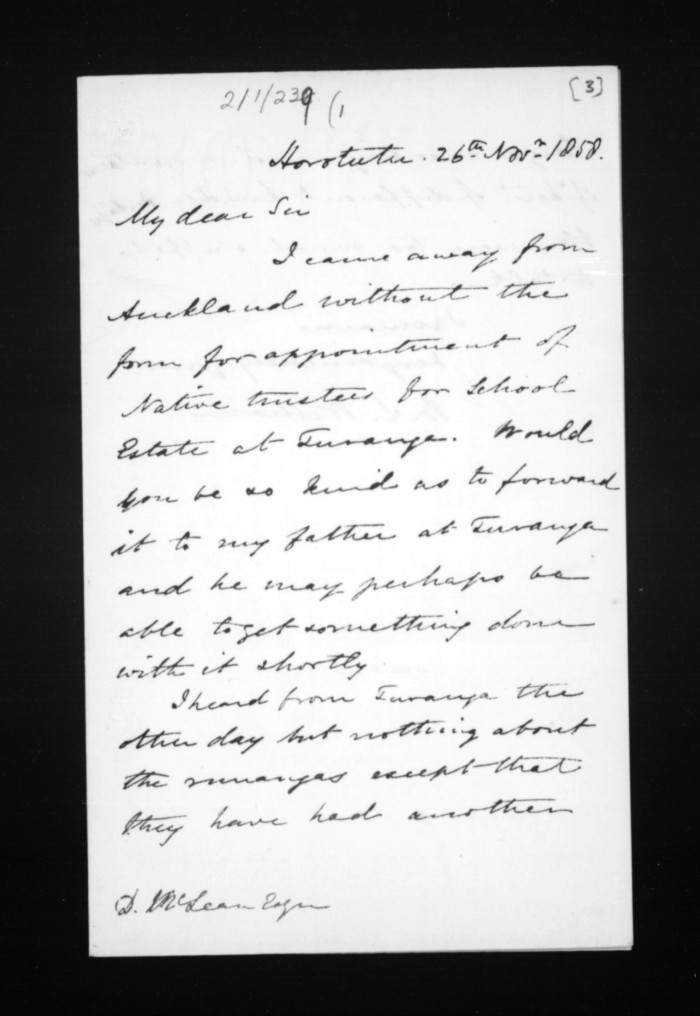 [3]
2/1/239 (1
Horotutu. 26th Novr. 1858.
My dear Sir
I came away from
Auckland without the
form for appointment of
Native trustees for School
Estate at Turanga. Would
you be so kind as to forward
it to my father at Turanga
and he may perhaps be
able to get something done
with it shortly
I heard from Turanga the
other day but nothing about
the runangas except that
they have had another
D. McLean Esqre